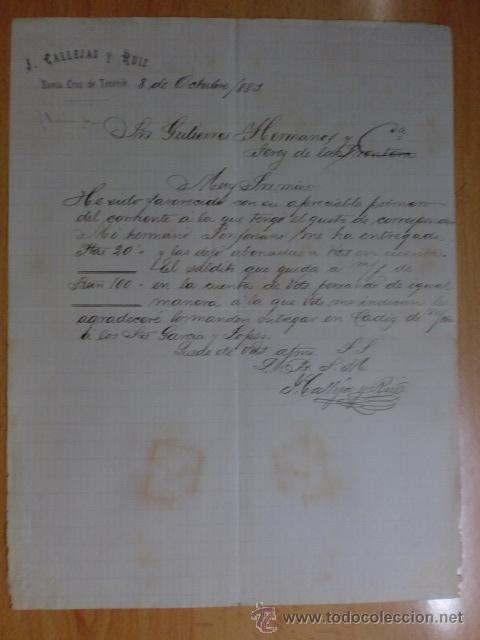 J. CALLEJAS Y RUIZ
Santa Cruz de Tenerife 8 de Octubre/883
Sres Gutierrez Hermanos y Cia
Jerez de la Frontera
Muy Sres mios
He sido favorecido con su apreciable primero
del corriente a la que tengo el gusto de corresponder
Mi hermano me ha entregado
Ptas 20 - y las dejo abonadas a Vds en cuenta
El saldito que queda a m/f de
100 - en la cuenta de Vds pesando de igual
manera á la que Vds me indican les
agradeceré lo manden entregar en Cadiz de m/c
á los Sres Garcia y Lopez.
Quedo de Vds afmo S.S.
J. Callejas y Ruiz
www.todocoleccion.net